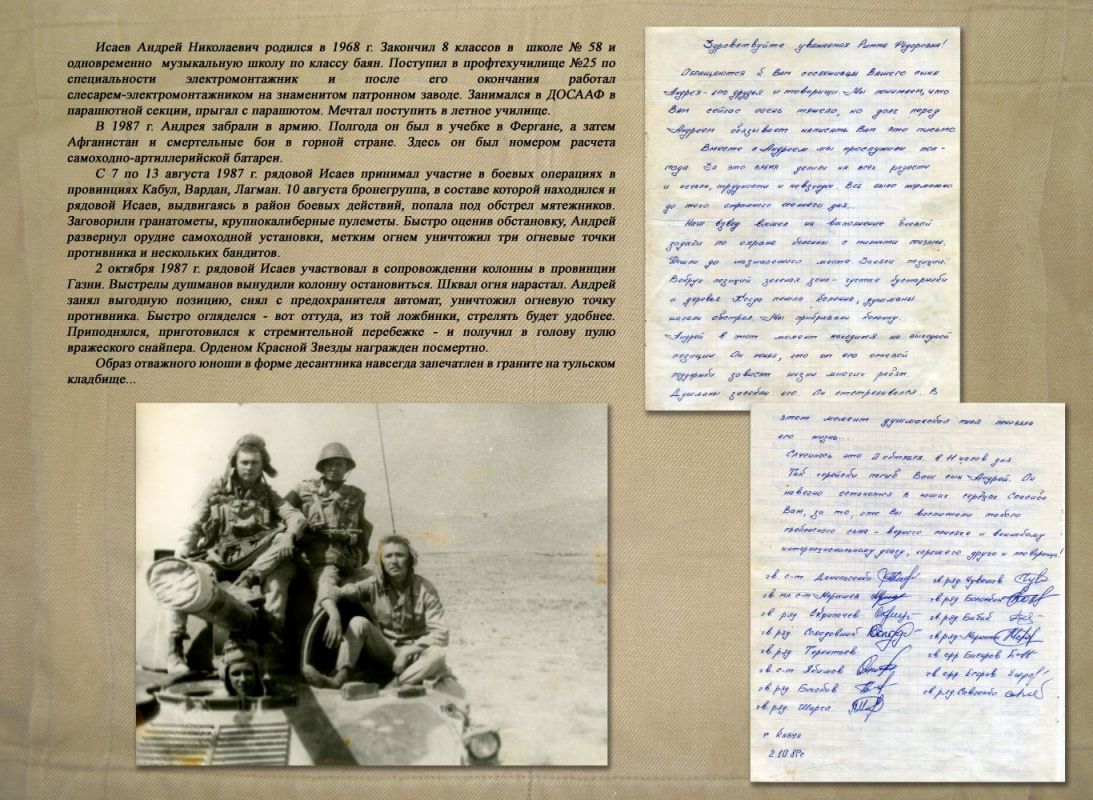 Исаев Андрей Николаевич родился в 1968 г. Закончил 8 классов в школе № 58 и
одновременно музыкальную школу по классу баян. Поступил в профтехучилище №25 по
специальности электромонтажник и после его окончания работал
слесарем-электромонтажником на знаменитом патронном заводе. Занимался в ДОСААФ в
парашютной секции, прыгал с парашютом. Мечтал поступить в летное училище.
В 1987 г. Андрея забрали в армию. Полгода он был в учебке в Фергане, а затем
Афганистан и смертельные бои в горной стране. Здесь он был номером расчета
самоходно-артиллерийской батареи.
С 7 по 13 августа 1987 г. рядовой Исаев принимал участие в боевых операциях в
провинциях Кабул, Вардан, Лагман. 10 августа бронегруппа, в составе которой находился и
рядовой Исаев, выдвигаясь в район боевых действий, попала под обстрел мятежников.
Заговорили гранатометы, крупнокалиберные пулеметы. Быстро оценив обстановку, Андрей
развернул орудие самоходной установки, метким огнем уничтожил три огневые точки
противника и нескольких бандитов.
2 октября 1987 г. рядовой Исаев участвовал в сопровождении колонны в провинции
Газни. Выстрелы душманов вынудили колонну остановиться. Шквал огня нарастал. Андрей
занял выгодную позицию, снял с предохранителя автомат, уничтожил огневую точку
противника. Быстро огляделся - вот оттуда, из той ложбинки, стрелять будет удобнее.
Приподнялся, приготовился к стремительной перебежке - и получил в голову пулю
вражеского снайпера. Орденом Красной Звезды награжден посмертно.
Образ отважного юноши в форме десантника навсегда запечатлен в граните на тульском
кладбище...
Здравствуйте уважаемая Римма Фёдоровна!
Обращаются к Вам сослуживцы Вашего сына
Андрея - его друзья и товарищи. Мы понимаем, что
Вам сейчас очень тяжело, но долг перед
Андреем обязывает написать Вам это письмо
Вместе с Андреем мы прослужили пол-
года. За это время делили на всех радости
и печали, трудности и невзгоды. Всё было нормально
до того страшного осеннего дня...
Наш взвод вышел на выполнение боевой
задачи по охране колонны с
Дошли до назначенного места Заняли позиции.
Вокруг позиций зелёная зона - густые кустарники
и деревья Когда пошла колонна, душманы
начали обстрел. Мы прикрывали колонну.
Андрей в этот момент находился на выгодной
позиции Он понял, что от его огневой
поддержки зависят жизни многих ребят.
Душманы засекли его. Он отстреливался. В
этот момент душманская пуля прервала
его жизнь...
Случилось это 2 октября в 11 часов дня
Так геройски погиб Ваш сын Андрей. Он
навечно останется в наших сердцах Спасибо
Вам, за то, что Вы воспитали такого
прекрасного сына - верного присяге и воинскому
интернациональному долгу, хорошего друга и товарища!
гв. с-т Данильченко
гв. ряд. Чувашов
гв. мл. с-т
гв. ряд.
гв. ряд. Скрипачев
гв. ряд. Бабак
гв. ряд. Солодовник
гв. ряд.
гв. ряд Терентьев
гв. ефр. Басыров
гв. с-т Якимов
гв. ефр. Егоров
гв. ряд.
гв. ряд. Савченко
гв. ряд. Шарга
г. Кабул
2.10.87г.